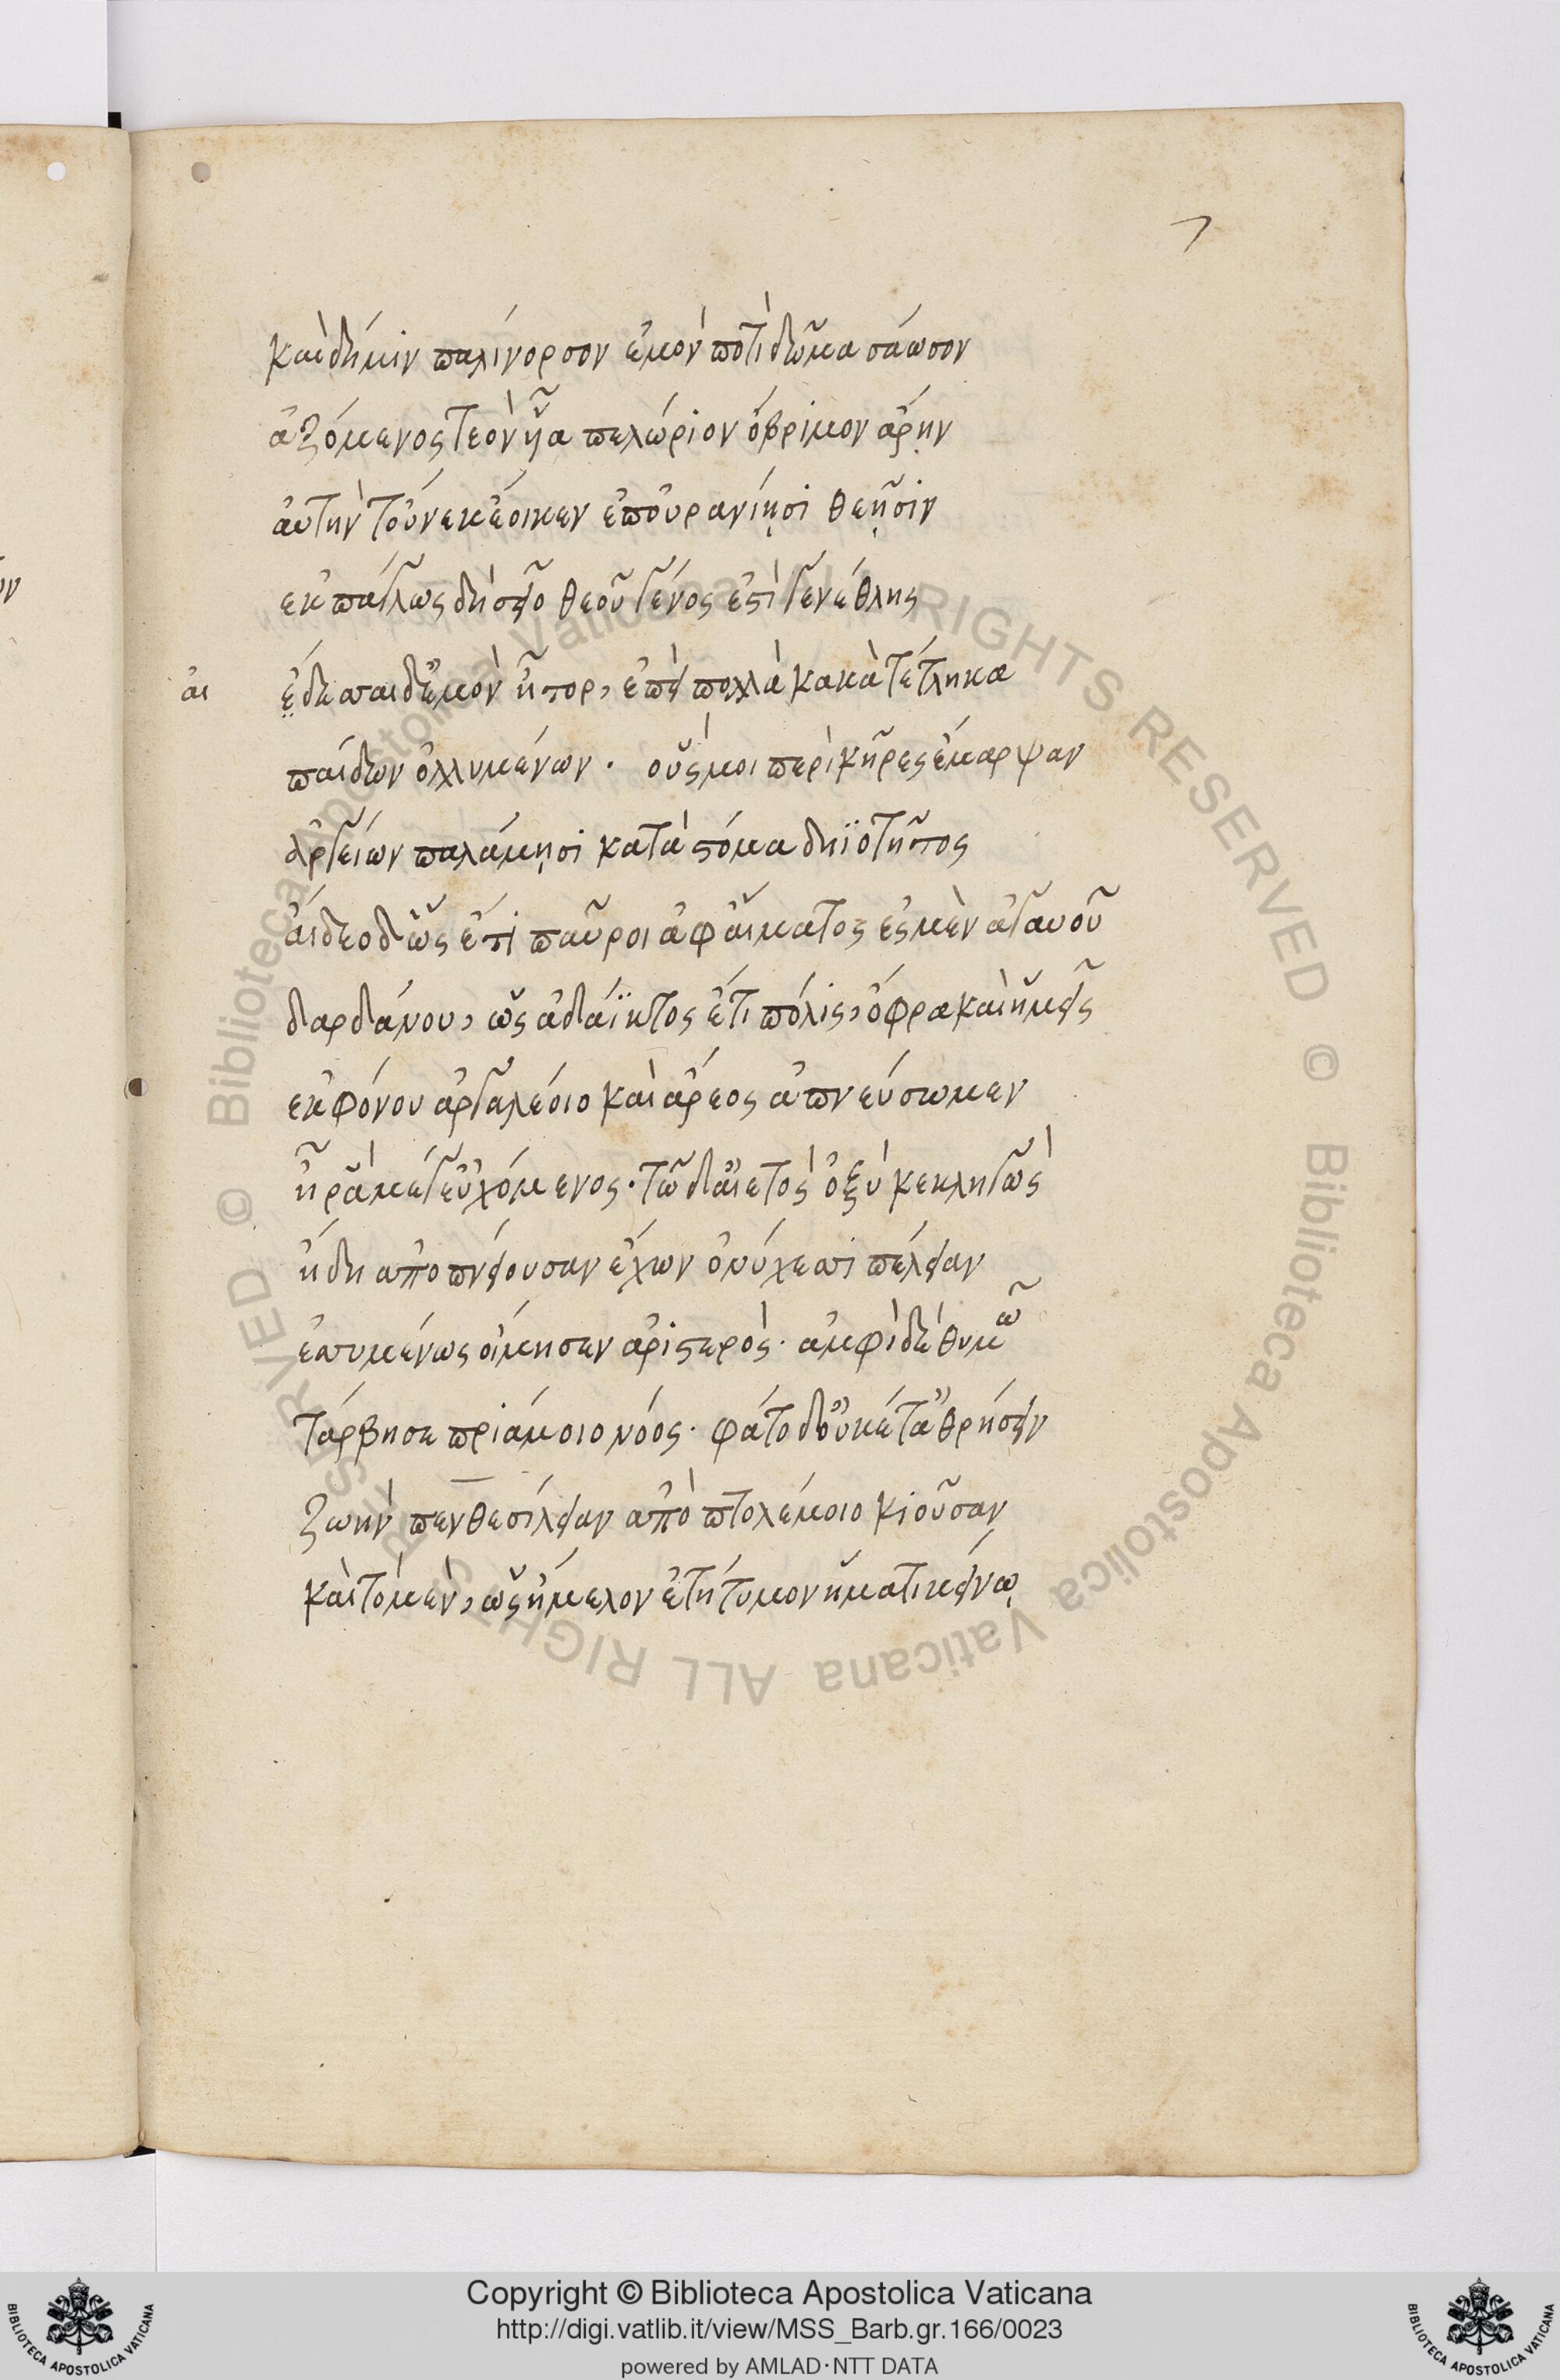 7
καὶ δή μιν παλίνορσον ἐμὸν ποτὶ δῶμα σάωσον
ἁζόμενος τεὸν ἦα πελώριον ὄβριμον ἄρην
αὐτὴν τοὔνεκ' ἔοικεν ἐπουρανίῃσι θεῇσιν
ἐκπάγλως δή σφιο θεοῦ γένος ἐστὶ γενέθλης
αἰ αἴδεσσαι δ' ἐμὸν ἦτορ, ἐπεὶ πολλὰ κακὰ τέτληκα
παίδων ὀλλυμένων. οὕς μοι περὶ κῆρες ἔμαρψαν
ἀργείων παλάμῃσι κατὰ στόμα δηϊοτῆτος
αἴδεο δ' ὣς ἔτι παῦροι ἀφ' αἵματος ἐσμὲν ἀγαυοῦ
δαρδάνου, ὡς ἀδάϊκτος ἔτι πόλις, ὄφρα καὶ ἡμεῖς
ἐκ φόνου ἀργαλέοιο καὶ ἄρεος ἀμπνεύσωμεν
ἦ ῥα μέγ' εὐχόμενος. τῷ δ' αἰετὸς ὀξὺ κεκληγὼς
ἤδη ἀποπνείουσαν ἔχων ὀνύχεσσι πέλειαν
ἐσσυμένως οἴμησεν ἀριστερός. ἀμφὶ δὲ θυμῷ
τάρβησε πριάμοιο νόος. φάτο δ' οὐκέτ' ἀθρήσειν
ζωὴν πενθεσίλειαν ἀπὸ πτολέμοιο κιοῦσαν
καὶ τὸ μὲν, ὣς ἤμελον ἐτήτυμον ἤματι κείνῳ
Copyright © Biblioteca Apostolica Vaticana
http://digi.vatlib.it/view/MSS_Barb.gr.166/0023
powered by AMLAD·NTT DATA